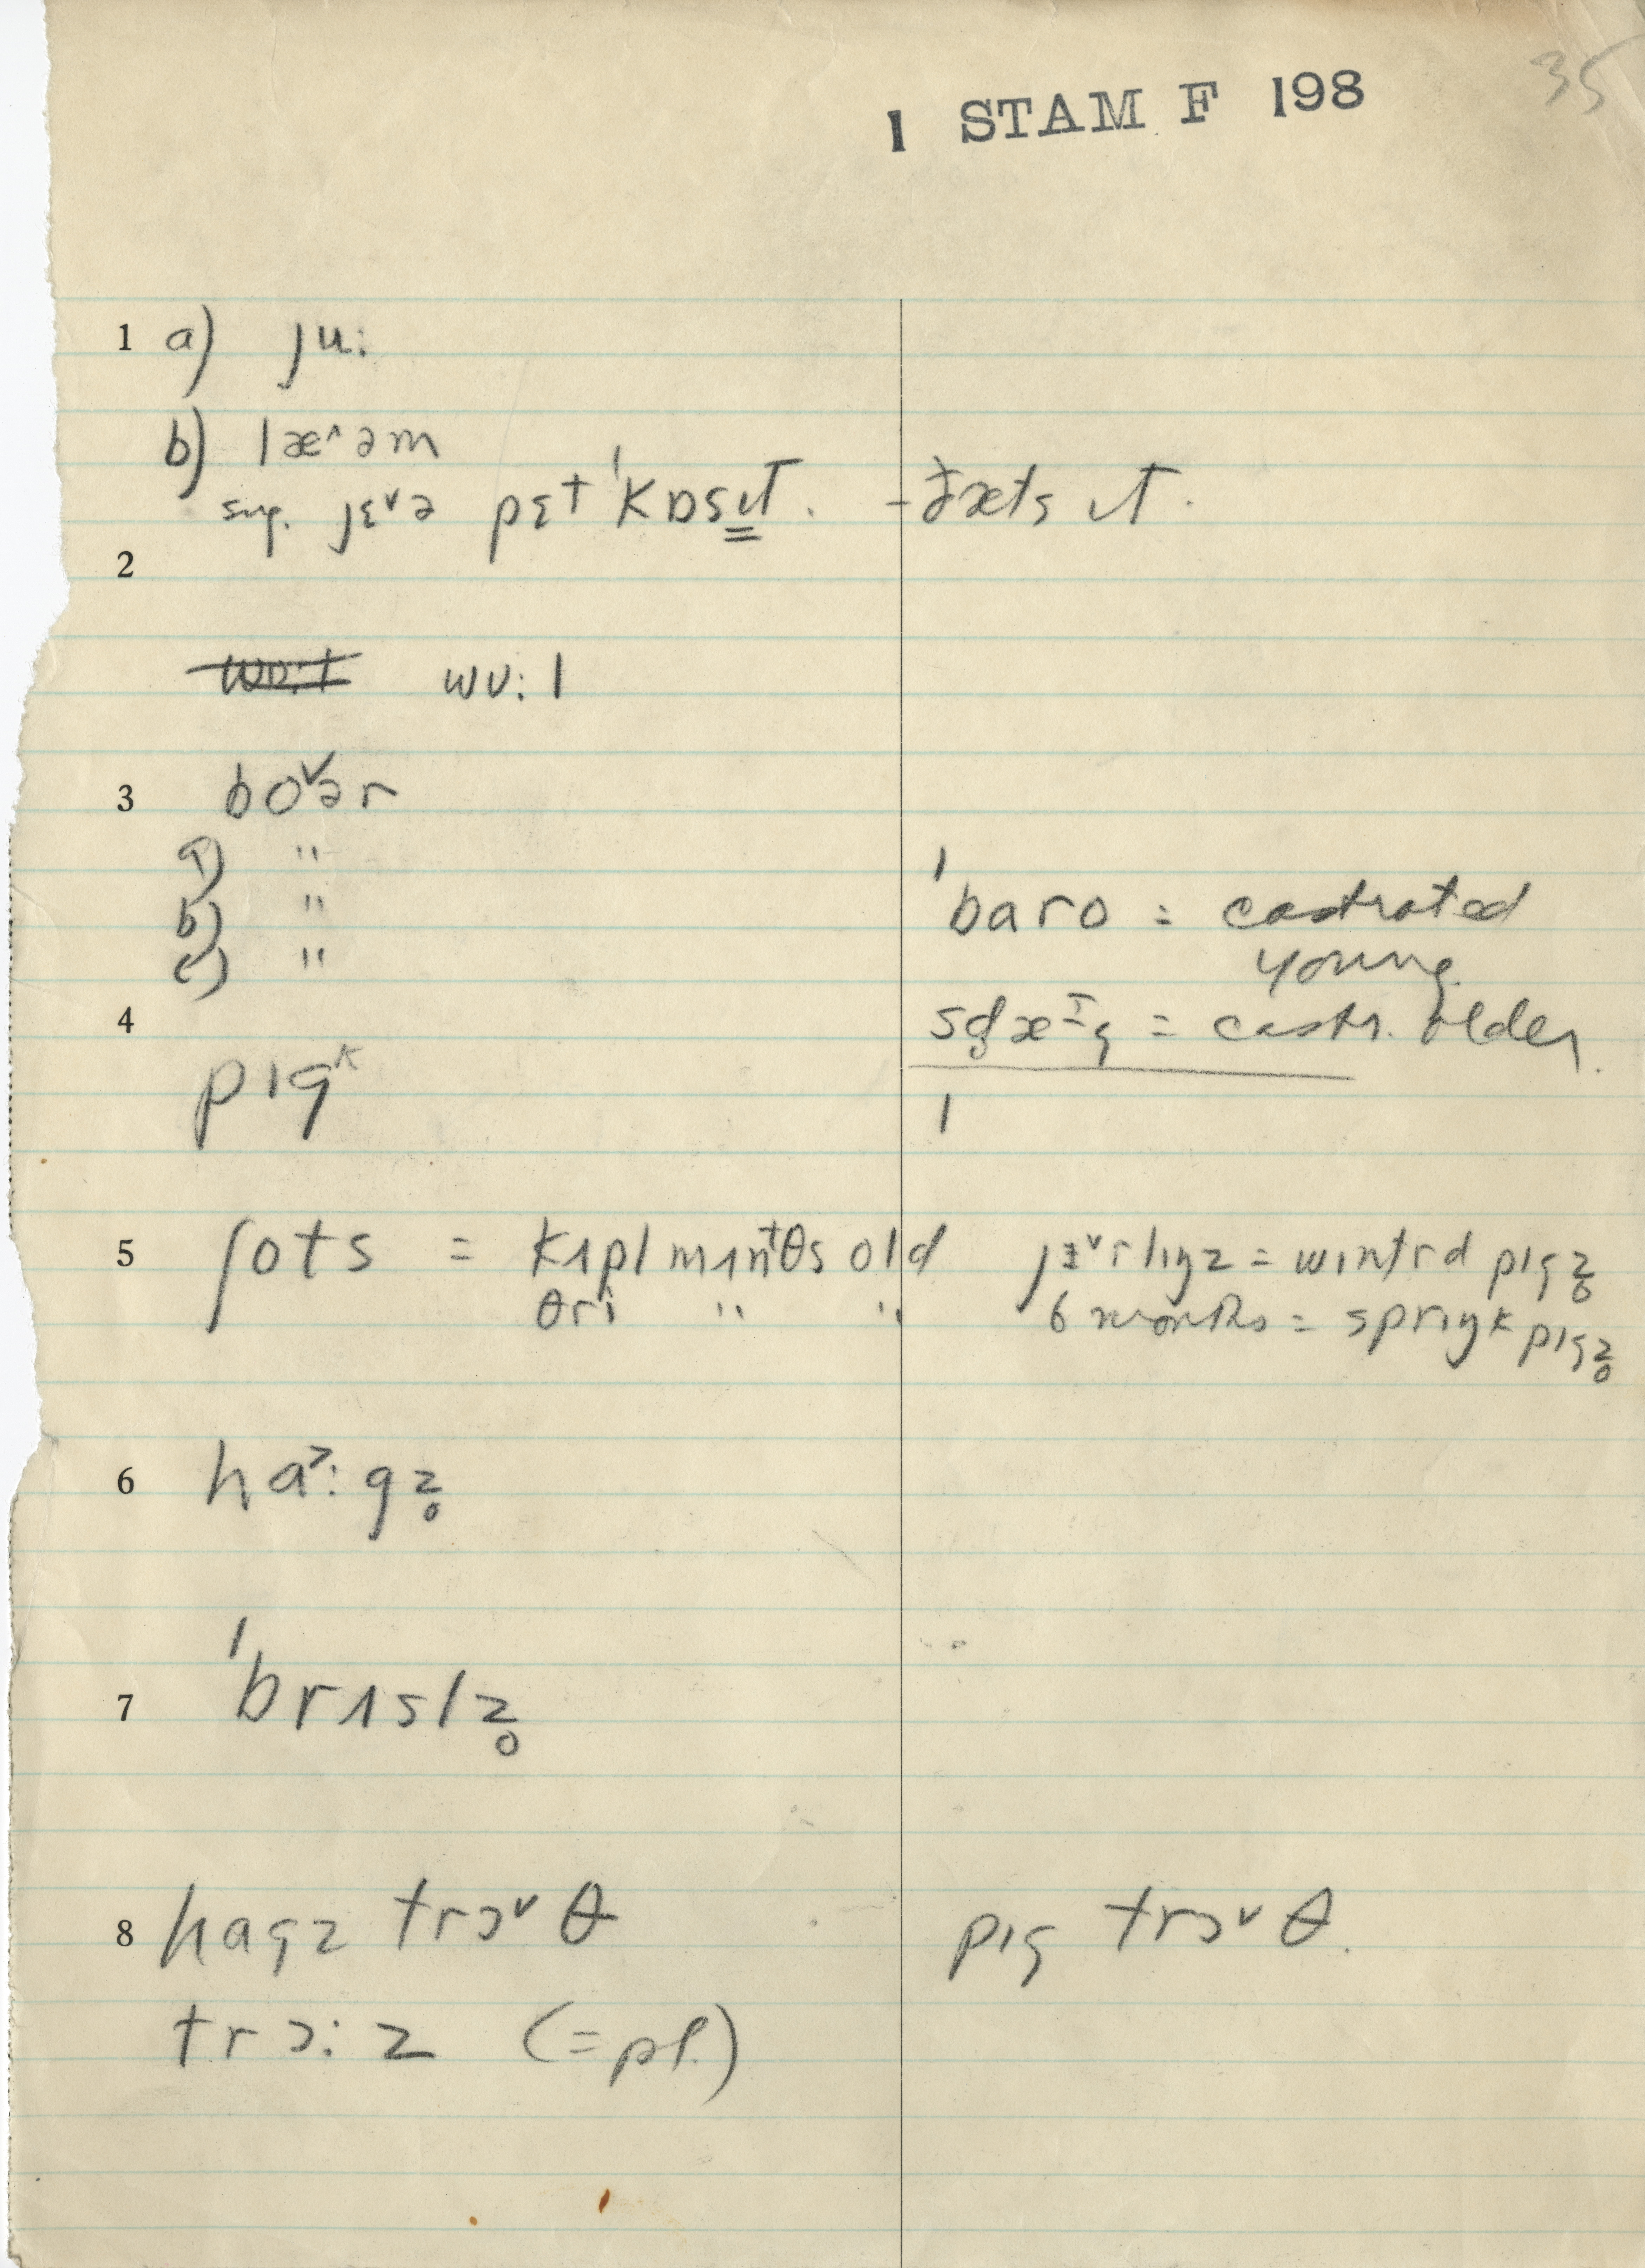 35
1 STAM F 198
1 a) ju:
b) læ^əm
sug. jɛ˅ə pɛt ˈkɒsɪt. - ðæts ɪt.
2
wʊ:l wʊ:l
3 bo˅ər
a) "
b) " ˈbaro = castrated
young.
c) "
4 = castr. older.
pɪgᵏ
5 ʃots = kɪpl mɪntθs old jɪ˅rlɪŋz = wɪntrd pɪgz̥
θri " " 6 months = sprɪŋk pɪgz̥
6 ha˃:gz̥
7 ˈbrɪslz̥
8 hagz trɔ˅θ pɪg trɔ˅θ.
trɔ:z (=pl.)